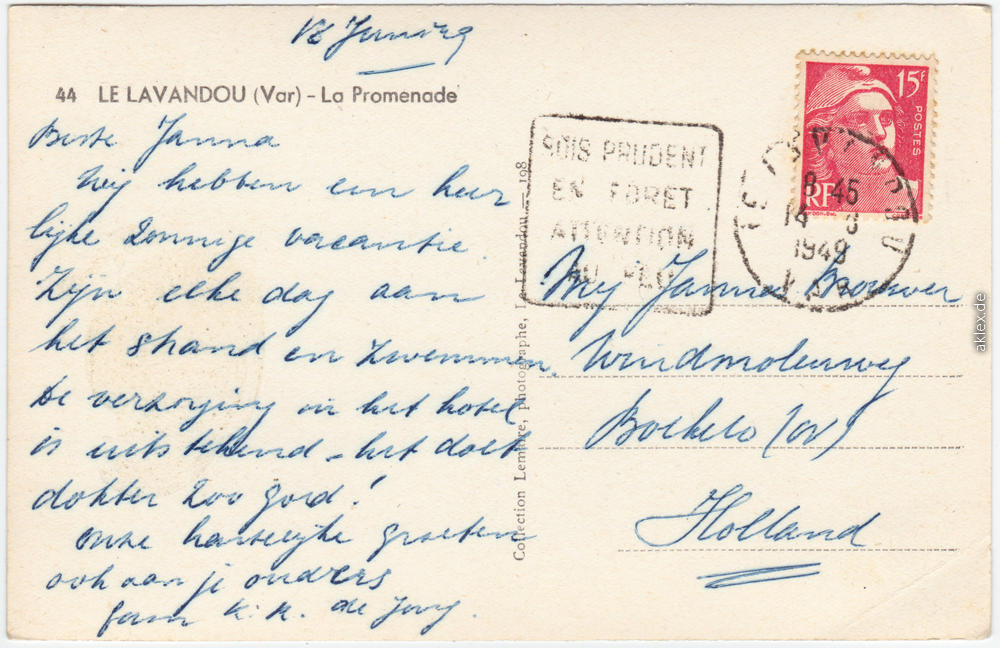 44 LE LAVANDOU (Var) - La Promenade
Beste Janna
Wij hebben een heer
lijke zonnige vacantie.
Zijn elke dag aan
het strand en zwemmen.
De verzorging in het hotel
is uitstekend - het doet
dokter zoo goed!
Onze hartelijke groeten
ook aan je ouders
fam K. K. de Jong.
Collection Lemaire, photographe, Le Lavandou — 198
SOIS PRUDENT
EN FORET
ATTENTION
AU FEU
15F
POSTES
RF
8-45
14
1949
VAR
Mej Janna Brouwer
Windmolenweg
Boekelo (OV)
Holland
aklex.de